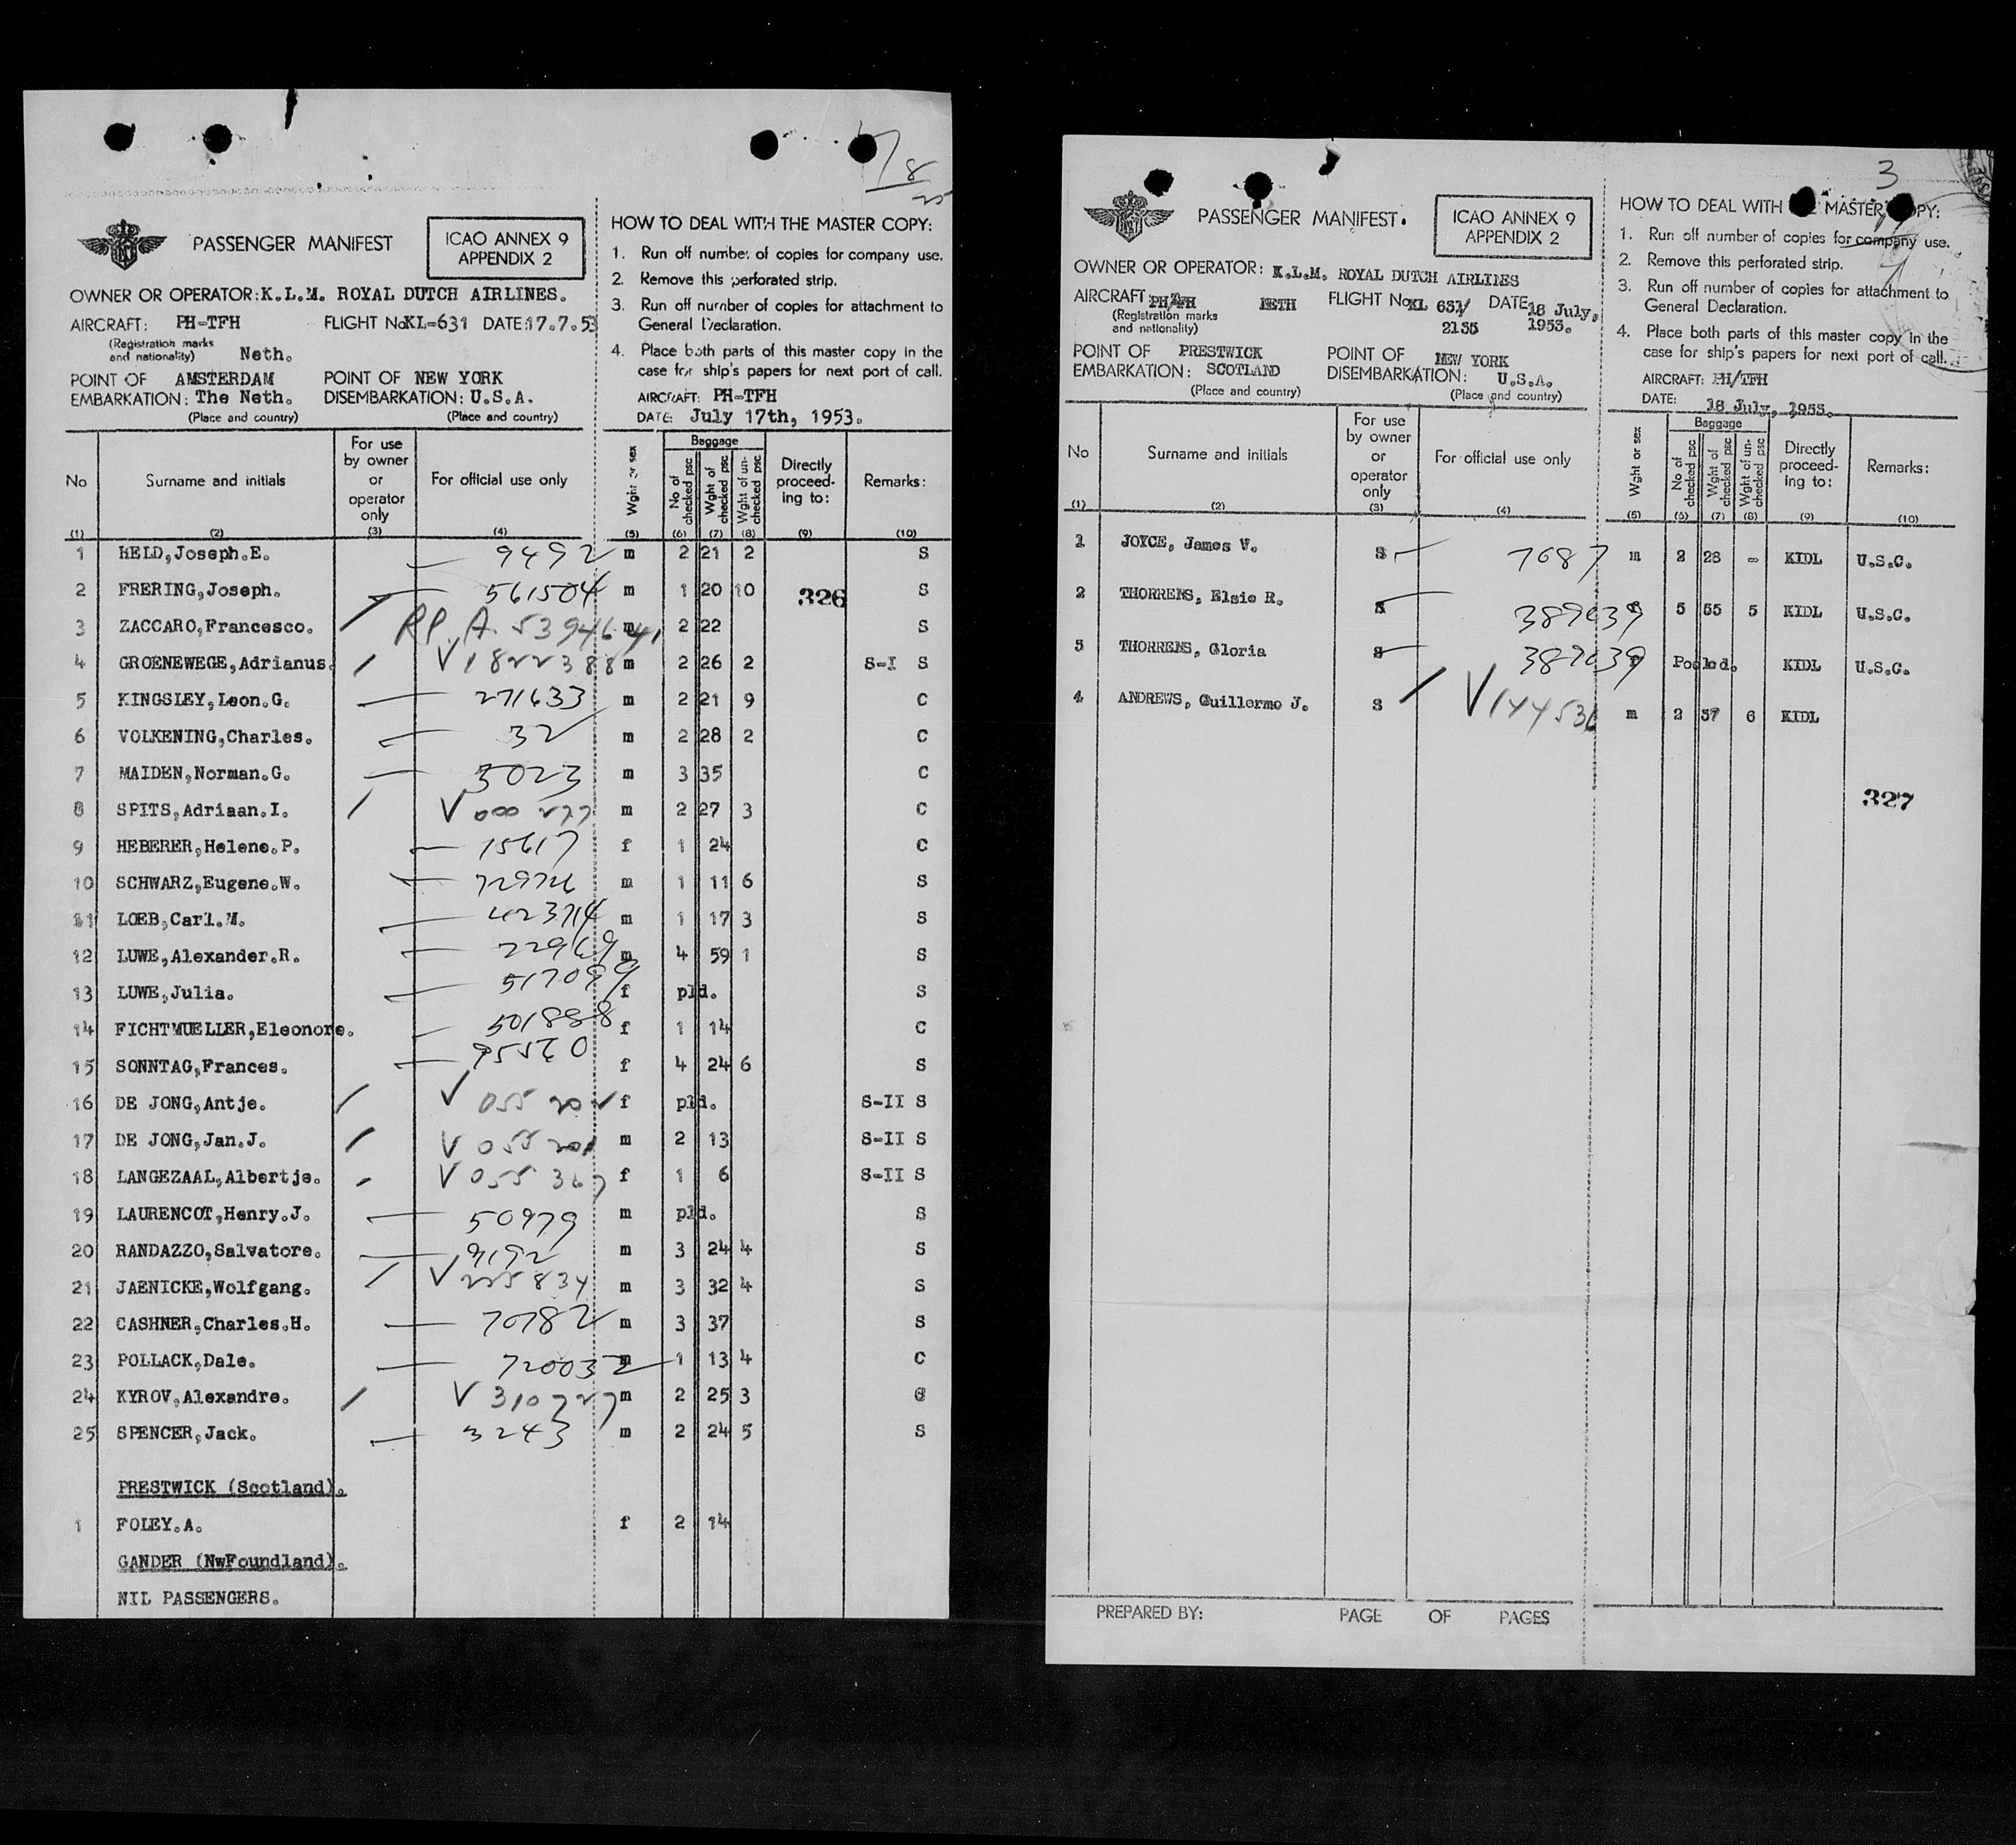 7/8
25
PASSENGER MANIFEST
ICAO ANNEX 9
APPENDIX 2
OWNER OR OPERATOR: K.L.M. ROYAL DUTCH AIRLINES.
AIRCRAFT: PH-TFH FLIGHT No KL-631 DATE: 17.7.53
(Registration marks
and nationality) Neth.
POINT OF AMSTERDAM POINT OF NEW YORK
EMBARKATION: The Neth. DISEMBARKATION: U.S.A.
(Place and country) (Place and country)
HOW TO DEAL WITH THE MASTER COPY:
1. Run off number of copies for company use.
2. Remove this perforated strip.
3. Run off number of copies for attachment to
General Declaration.
4. Place both parts of this master copy in the
case for ship's papers for next port of call.
AIRCRAFT: PH-TFH
DATE: July 17th, 1953.
No Surname and initials For use by owner or operator only For official use only Wght or sex Baggage No of checked psc Wght of checked psc Wght of un-checked psc Directly proceed-ing to: Remarks:
(1) (2) (3) (4) (5) (6) (7) (8) (9) (10)
1 HELD,Joseph.E. — 9492 m 2 21 2 S
2 FRERING,Joseph. — 561504 m 1 20 10 326 S
3 ZACCARO,Francesco. / RP. A. 5394641 m 2 22 S
4 GROENEWEGE,Adrianus. / V1822388 m 2 26 2 S-I S
5 KINGSLEY,Leon.G. — 271633 m 2 21 9 C
6 VOLKENING,Charles. — 32 m 2 28 2 C
7 MAIDEN,Norman.G. — 3023 m 3 35 C
8 SPITS,Adriaan.I. / V 000 277 m 2 27 3 C
9 HEBERER,Helene.P. — 15617 f 1 24 C
10 SCHWARZ,Eugene.W. — 729726 m 1 11 6 S
11 LOEB,Carl.M. — 423714 m 1 17 3 S
12 LUWE,Alexander.R. — 22969 m 4 59 1 S
13 LUWE,Julia. — 517099 f pld. S
14 FICHTMUELLER,Eleonore. — 501888 f 1 14 C
15 SONNTAG,Frances. — 95560 f 4 24 6 S
16 DE JONG,Antje. / V 055 202 f pld. S-II S
17 DE JONG,Jan.J. / V 055 201 m 2 13 S-II S
18 LANGEZAAL,Albertje. / V 055 367 f 1 6 S-II S
19 LAURENCOT,Henry.J. — 50979 m pld. S
20 RANDAZZO,Salvatore. — 9192 m 3 24 4 S
21 JAENICKE,Wolfgang. / V 225834 m 3 32 4 S
22 CASHNER,Charles.H. — 70782 m 3 37 S
23 POLLACK,Dale. — 720032 m 1 13 4 C
24 KYROV,Alexandre. / V 310727 m 2 25 3 S
25 SPENCER,Jack. — 3243 m 2 24 5 S
PRESTWICK (Scotland).
1 FOLEY.A. f 2 14
GANDER (NwFoundland).
NIL PASSENGERS.
3
PASSENGER MANIFEST.
ICAO ANNEX 9
APPENDIX 2
OWNER OR OPERATOR: K.L.M. ROYAL DUTCH AIRLINES
AIRCRAFT: PH/TFH NETH FLIGHT No KL 631/ DATE 18 July,
(Registration marks 2155 1953.
and nationality)
POINT OF PRESTWICK POINT OF NEW YORK
EMBARKATION: SCOTLAND DISEMBARKATION: U.S.A.
(Place and country) (Place and country)
HOW TO DEAL WITH MASTER COPY:
1. Run off number of copies for company use.
2. Remove this perforated strip.
3. Run off number of copies for attachment to
General Declaration.
4. Place both parts of this master copy in the
case for ship's papers for next port of call.
AIRCRAFT: PH/TFH
DATE: 18 July, 1953.
No Surname and initials For use by owner or operator only For official use only Wght or sex Baggage No of checked psc Wght of checked psc Wght of un-checked psc Directly proceed-ing to: Remarks:
(1) (2) (3) (4) (5) (6) (7) (8) (9) (10)
1 JOYCE, James V. S — 7687 m 2 28 - KIDL U.S.C.
2 THORRENS, Elsie R. S — 389639 5 55 5 KIDL U.S.C.
3 THORRENS, Gloria S — 389639 Pooled. KIDL U.S.C.
4 ANDREWS, Guillermo J. S / V144536 m 2 37 6 KIDL
327
PREPARED BY: PAGE OF PAGES